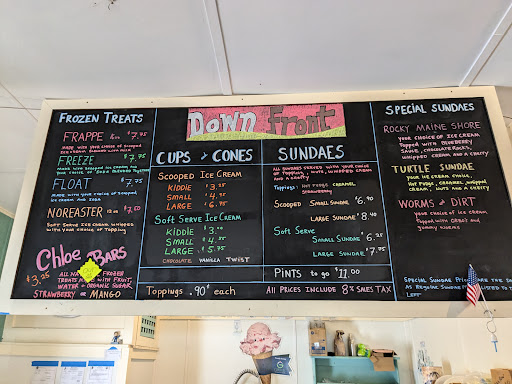 Down Front
FROZEN TREATS
FRAPPE $7.95
MADE WITH YOUR CHOICE OF SCOOPED
ICE CREAM BLENDED WITH MILK
FREEZE $7.95
MADE WITH SCOOPED ICE CREAM AND
YOUR CHOICE OF SODA BLENDED TOGETHER
FLOAT $7.25
MADE WITH YOUR CHOICE OF SCOOPED
ICE CREAM AND SODA
NOREASTER 12 oz $7.50
SOFT SERVE ICE CREAM WHIPPED
WITH YOUR CHOICE OF TOPPING
Chloe BARS
$3.25
ALL NATURAL FROZEN
TREAT WITH FRUIT,
WATER + ORGANIC SUGAR
STRAWBERRY OR MANGO
CUPS & CONES
SCOOPED ICE CREAM
KIDDIE
SMALL
LARGE
SOFT SERVE ICE CREAM
KIDDIE
SMALL
LARGE $5.75
CHOCOLATE VANILLA TWIST
SUNDAES
ALL SUNDAES SERVED WITH YOUR CHOICE
OF TOPPING, NUTS, WHIPPED CREAM
AND A CHERRY
Toppings: HOT FUDGE CARAMEL
STRAWBERRY
SCOOPED SMALL SUNDAE $6.90
LARGE SUNDAE $8.40
SOFT SERVE
SMALL SUNDAE $6.25
LARGE SUNDAE $7.75
PINTS to go $11.00
Toppings .90¢ each
ALL PRICES INCLUDE 8% SALES TAX
SPECIAL SUNDAES
ROCKY MAINE SHORE
YOUR CHOICE OF ICE CREAM
TOPPED WITH BLUEBERRY
SAUCE, CHOCOLATE ROCKS,
WHIPPED CREAM AND A CHERRY
TURTLE SUNDAE
YOUR ICE CREAM CHOICE,
HOT FUDGE, CARAMEL, WHIPPED
CREAM, NUTS AND A CHERRY
WORMS & DIRT
YOUR CHOICE OF ICE CREAM
TOPPED WITH OREOS AND
GUMMY WORMS
SPECIAL SUNDAE PRICES ARE THE SAME
AS REGULAR SUNDAE
LEFT